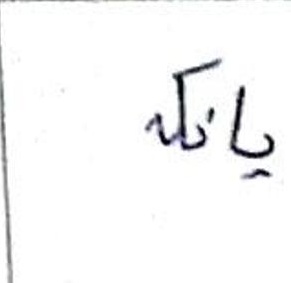 یانکه